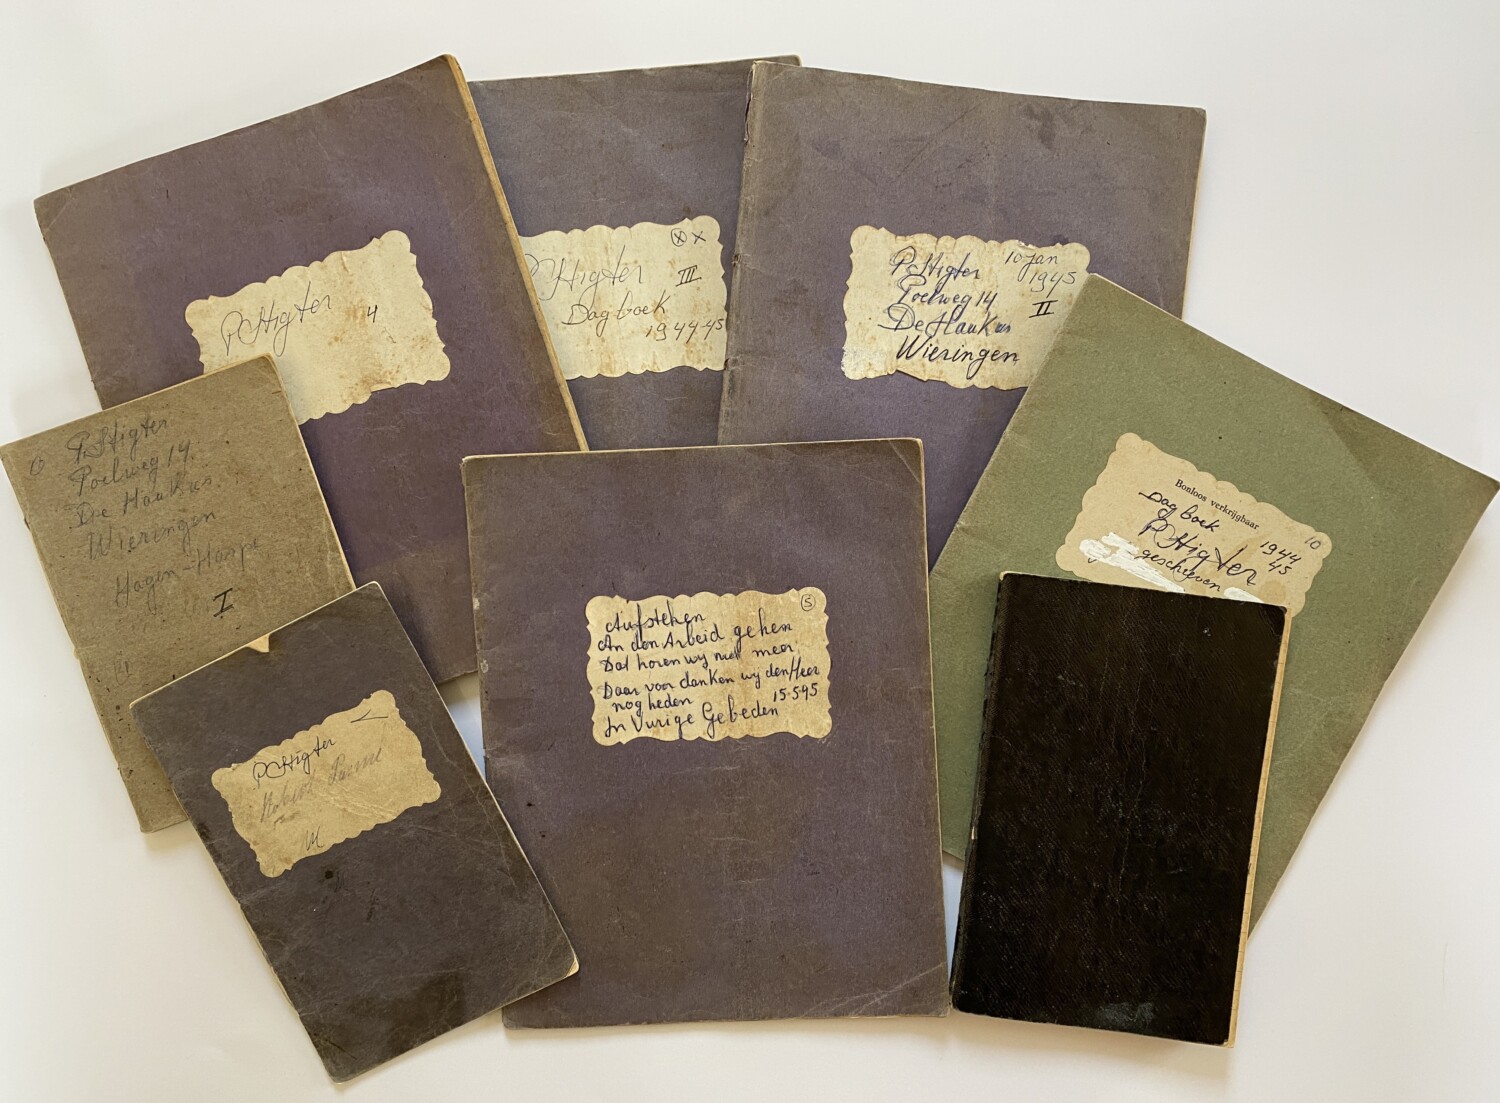 P. Higter
4
P Higter
III
Dagboek
1944-45
P. Higter
10 jan
1945
Poelweg 14
II
De Haukes
Wieringen
P. Higter
Poelweg 14
De Haukes
Wieringen
Hagen-Haspe
I
Bonloos verkrijgbaar
10
Dagboek
1944
45
P Higter
geschreven
Aufstehen
5
An den Arbeid gehen
Dat horen wy niet meer
Daar voor danken wy den Heer
nog heden
15-5-45
In Vurige Gebeden
P. Higter